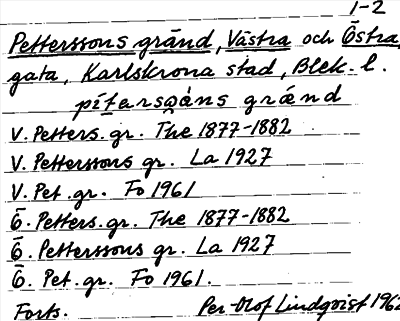 1-2
Petterssons gränd, Västra och Östra,
gata, Karlskrona stad, Blek. l.
pítarsǫ̀ns grænd
V. Petters. gr. The 1877-1882
V. Petterssons gr. La 1927
V. Pet. gr. Fo 1961
Ö. Petters. gr. The 1877-1882
Ö. Petterssons gr. La 1927
Ö. Pet. gr. Fo 1961.
Forts. Per-Olof Lindqvist 1962